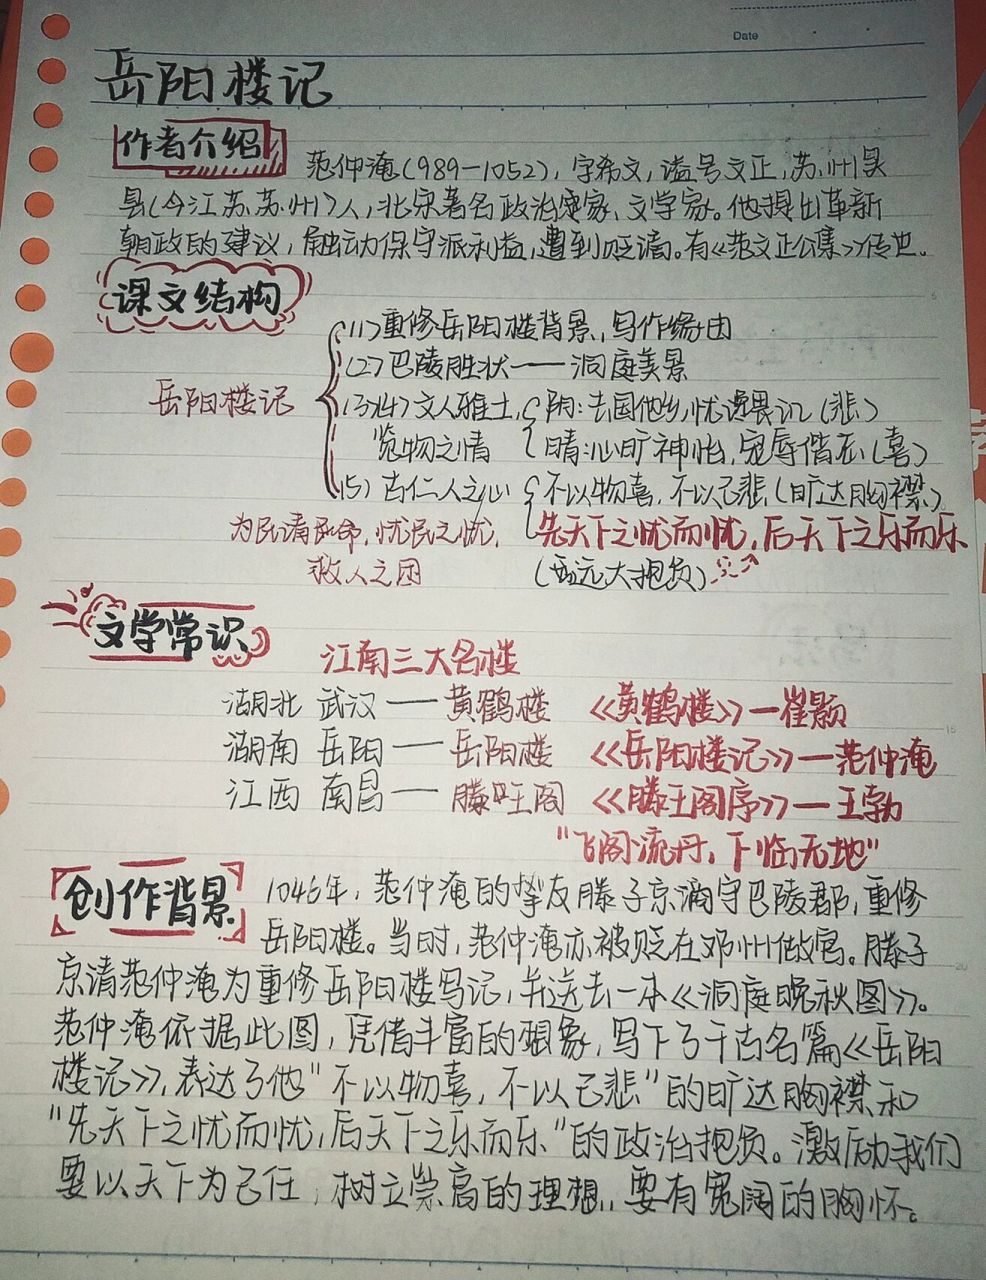 Date
岳阳楼记
作者介绍
范仲淹(989-1052),字希文,谥号文正,苏州吴
县(今江苏苏州)人,北宋著名政治家、文学家。他提出革新
朝政的建议,触动保守派利益,遭到贬谪。有《范文正公集》传世。
课文结构
岳阳楼记
(1)重修岳阳楼背景,写作缘由
(2)巴陵胜状——洞庭美景
(3)(4)文人雅士,览物之情
阴:去国怀乡,忧谗畏讥(悲)
晴:心旷神怡,宠辱偕忘(喜)
(5)古仁人之心
不以物喜,不以己悲(旷达胸襟)
先天下之忧而忧,后天下之乐而乐
为民请命,忧民之忧,
救人之困
(远大抱负)
文学常识
江南三大名楼
湖北 武汉——黄鹤楼 《黄鹤楼》—崔颢
湖南 岳阳——岳阳楼 《岳阳楼记》—范仲淹
江西 南昌——滕王阁 《滕王阁序》—王勃
"飞阁流丹,下临无地"
创作背景
1046年,范仲淹的挚友滕子京谪守巴陵郡,重修
岳阳楼。当时,范仲淹亦被贬在邓州做官。滕子
京请范仲淹为重修岳阳楼写记,并送去一本《洞庭晚秋图》。
范仲淹依据此图,凭借丰富的想象,写下了千古名篇《岳阳
楼记》,表达了他"不以物喜,不以己悲"的旷达胸襟和
"先天下之忧而忧,后天下之乐而乐"的政治抱负。激励我们
要以天下为己任,树立崇高的理想,要有宽阔的胸怀。